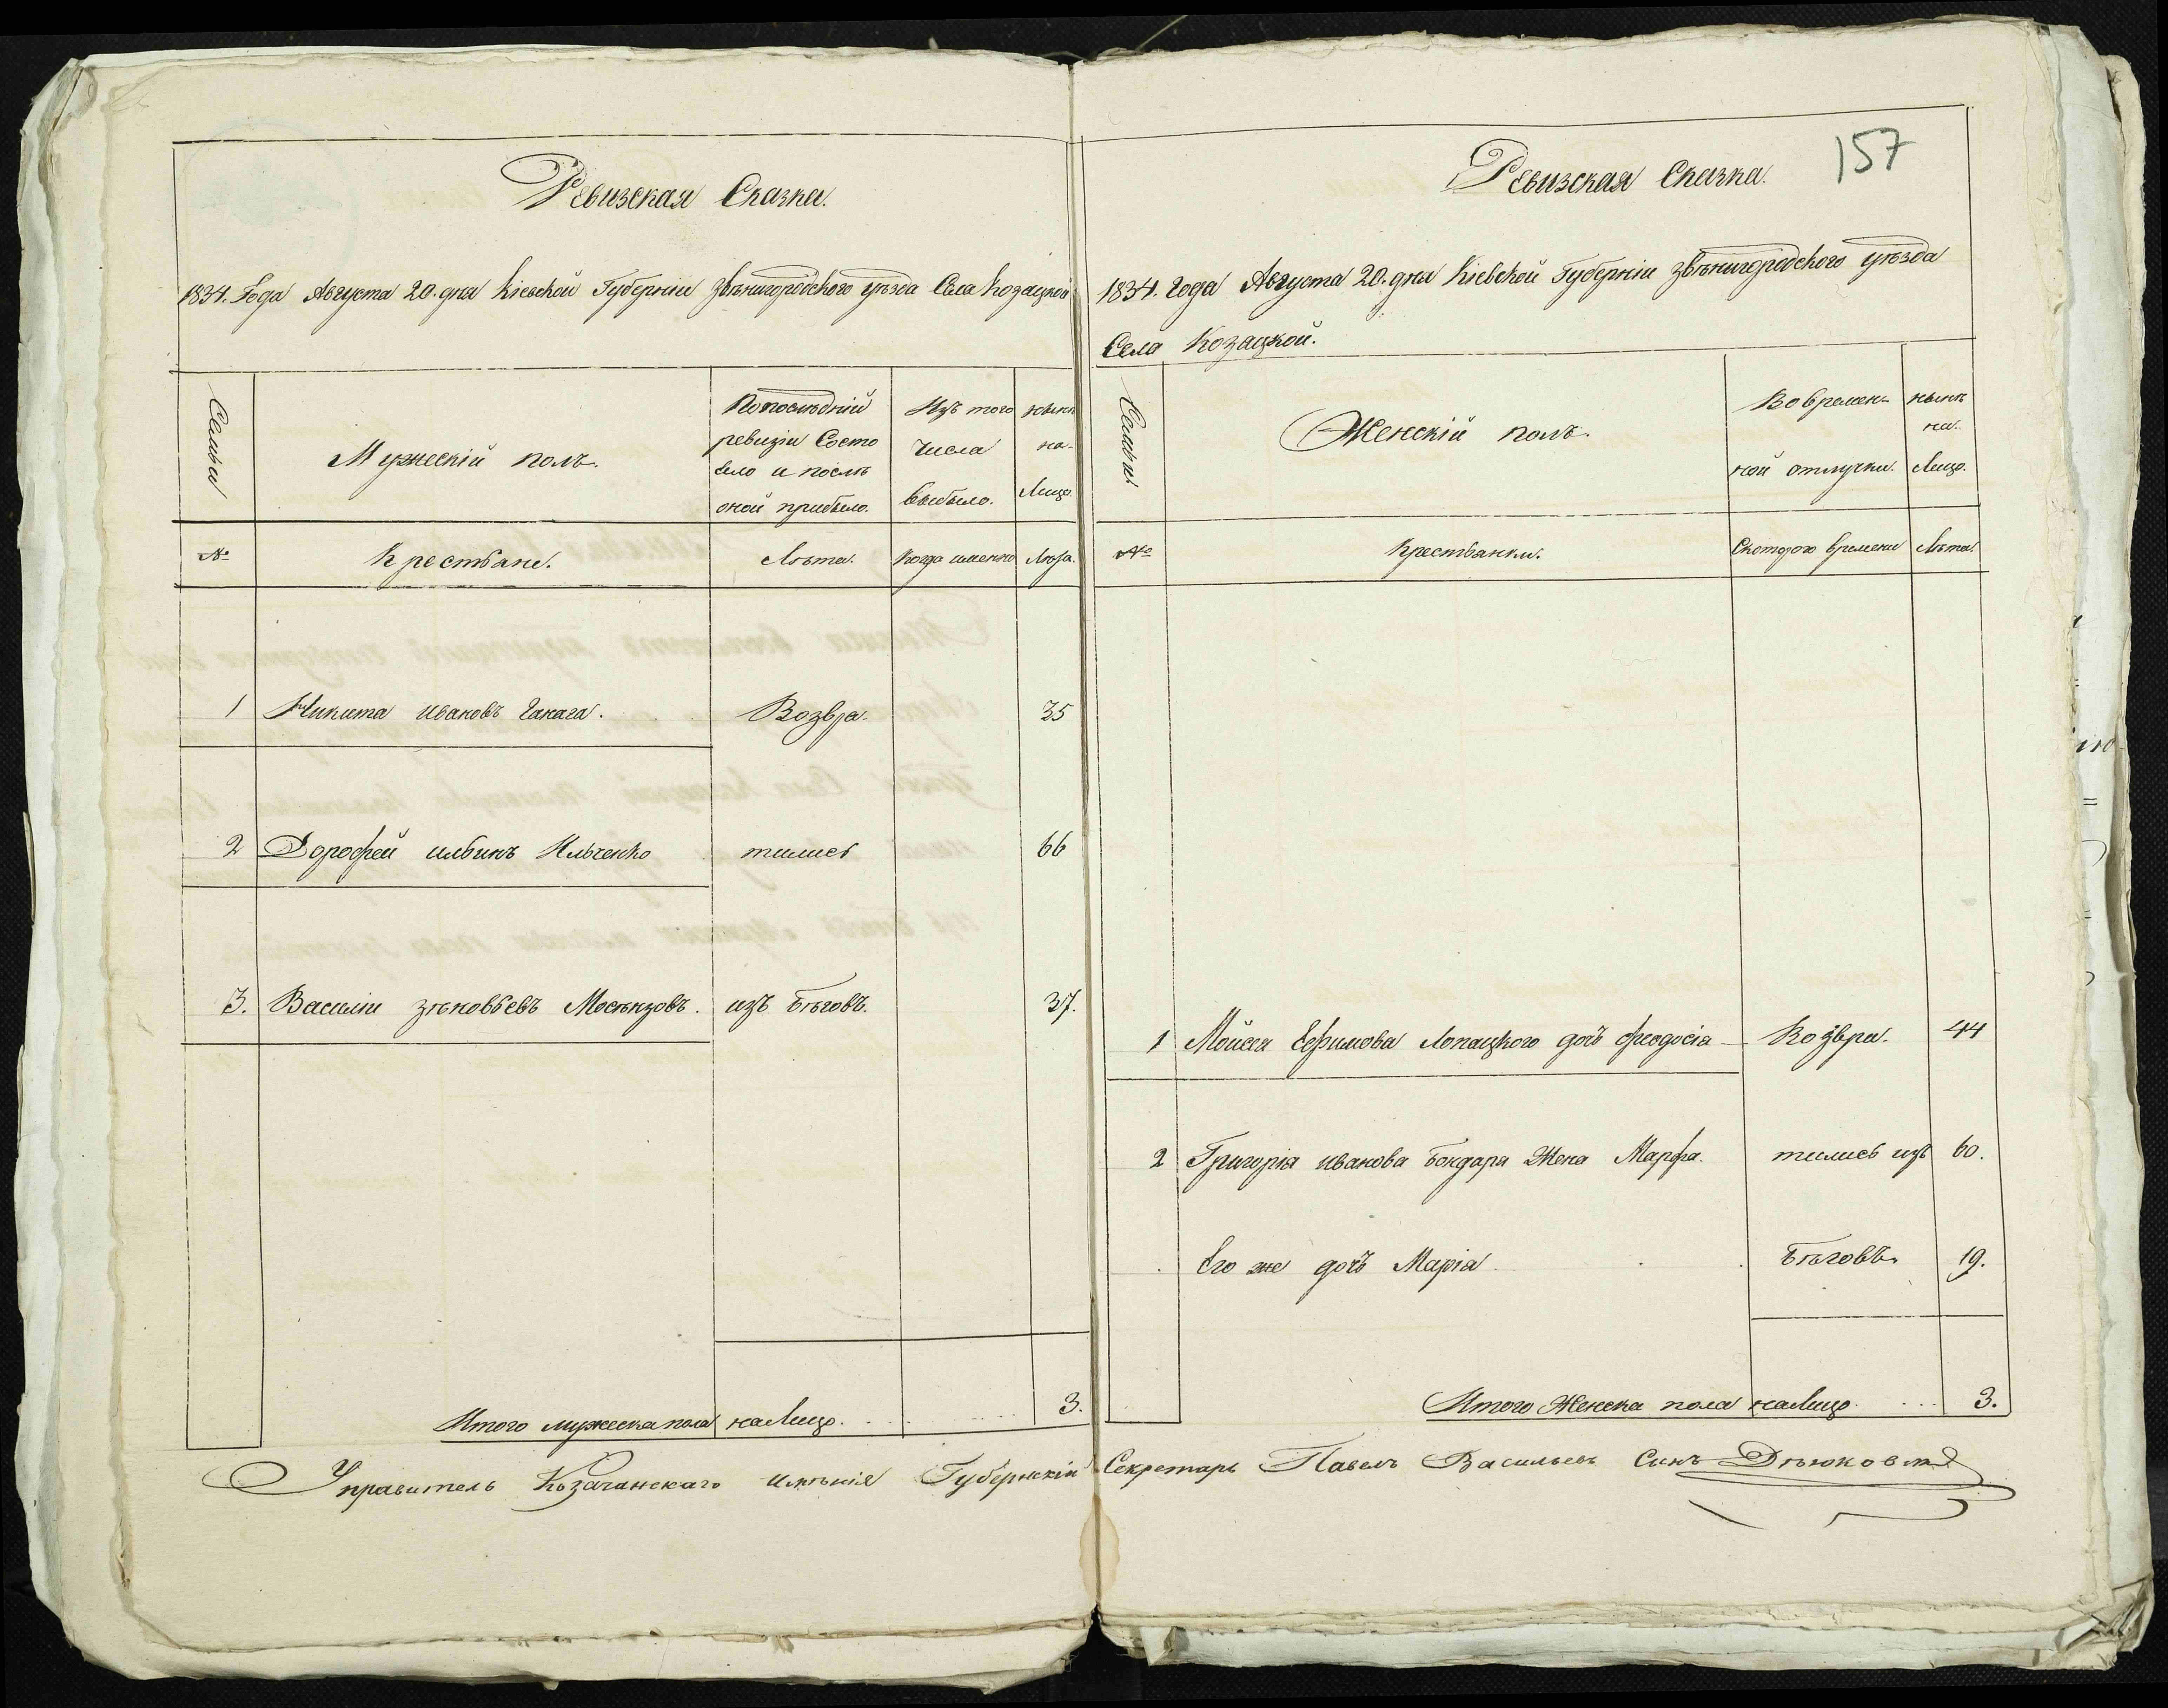 157
Ревизская Сказка.
1834. Года Августа 20. дня Кіевской Губерніи Звѣнигородского уѣзда Села Козацкой
Семьи
Мужескій полъ.
Попослѣдній
ревизіи Состо
яло и послѣ
оной прибыло.
Изъ того
числа
выбыло.
нынѣ
на-
Лицо
№
Крестьяне.
Лѣта.
Когда именно
Лѣта.
1 Никита ивановъ Возвра- 35
2 Дорофей ильинъ Ильченко тились 66
3. Василій зѣновьевъ изъ бѣговъ. 37.
Итого мужеска пола налицо. 3.
Ревизская Сказка.
1834. Года Августа 20. дня Кіевской Губерніи Звѣнигородского уѣзда
Села Козацкой.
Семьи
Женскій полъ.
Во времен-
ной отлучки.
нынѣ
на-
Лицо.
№
Крестьянки.
Скоторого времени
Лѣта.
1 Мойсея Ефимова Лопацкого дочь феодосія Возвра. 44
2 Григорія иванова бондаря Жена Марфа. тились изъ 60.
Его же дочь Марія бѣговъ. 19.
Итого Женска пола налицо 3.
Управитель Козачанскаго имѣнія Губернскій Секретарь Павелъ Васильевъ Сынъ